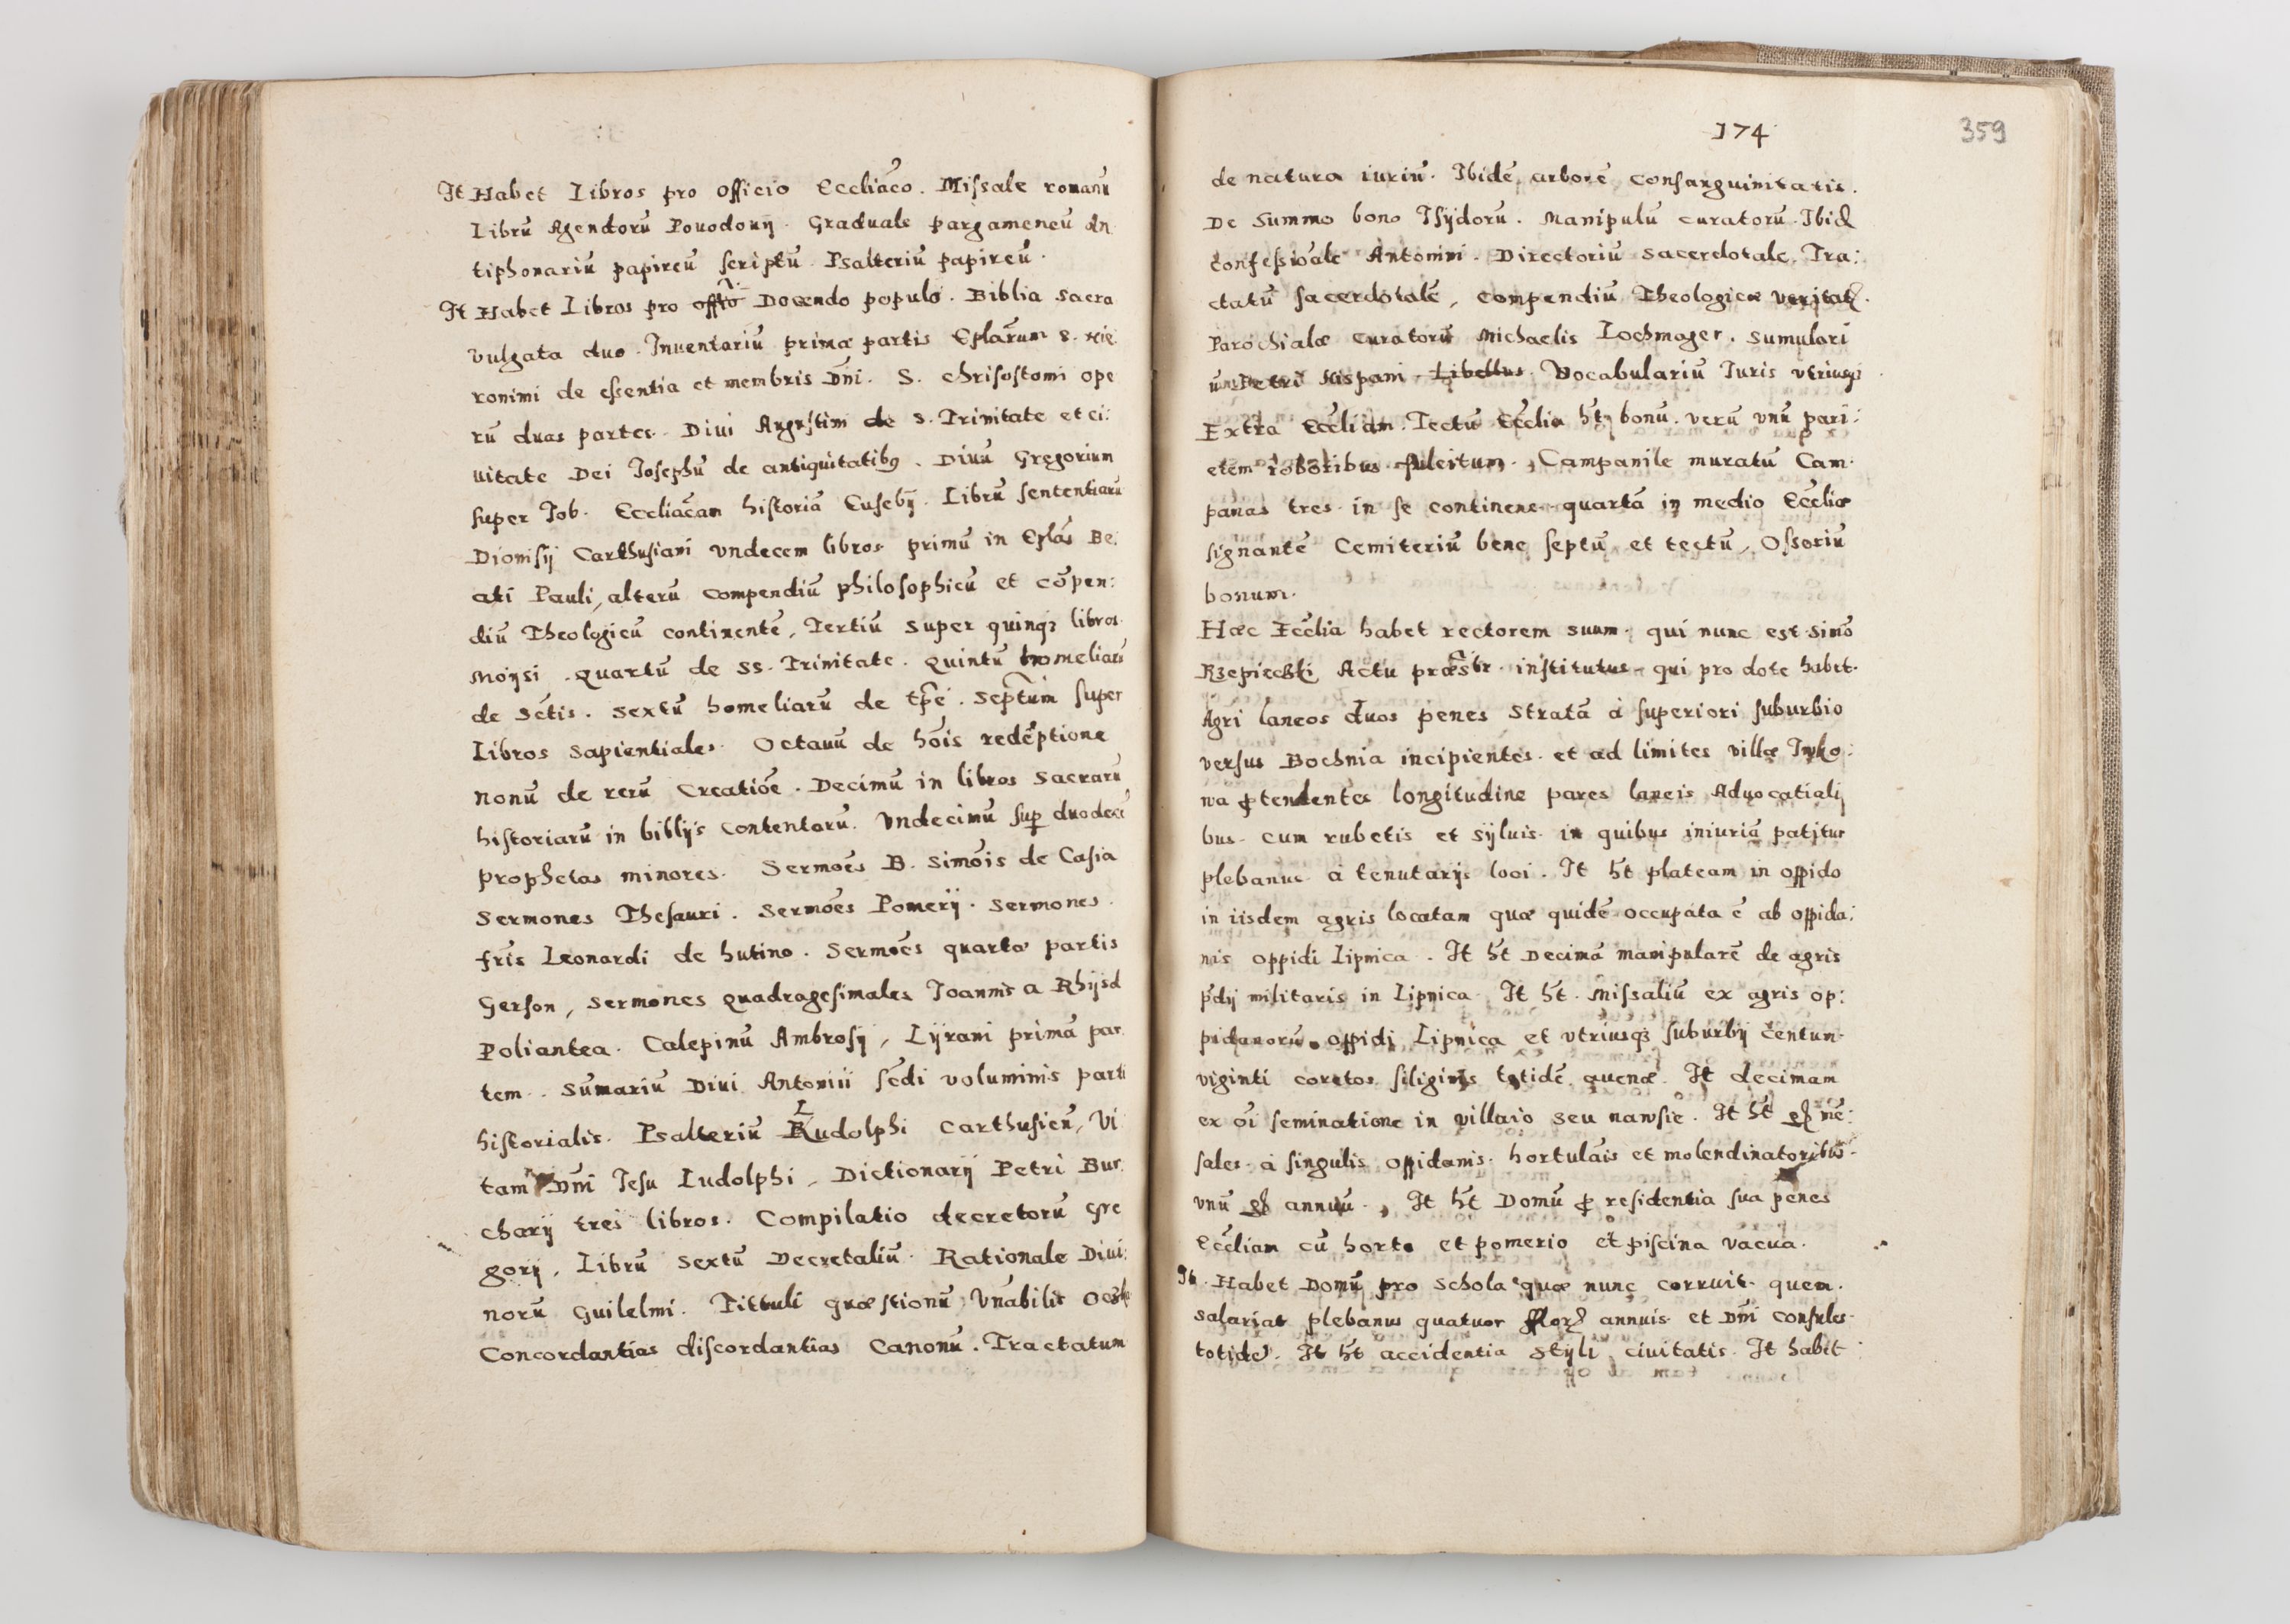 It Habet Libros pro officio Eccliāco. Missale romanū
Librū Agendorū Povodovij. Graduale pargameneū An
tiphonariū papireū scriptū Psalteriū papireū.
It Habet Libros pro Docendo populo. Biblia sacra
vulgata duo. Inventariū primæ partis Eplārum S. Hie
ronimi de essentia et membris Dni. S. Chrisostomi ope
rū duas partes. Divi Augustini de S. Trinitate et ci:
vitate Dei Josephū de antiquitatibȝ. Divū Gregorium
super Job. Eccliācam historiā Eusebij. Librū sententiarū
Dionisij Carthusiani vndecem libros primū in Eplās Be:
ati Pauli, alterū compendiū philosophicū et cōpen:
diū Theologicū continentē, Tertiū super quinqȝ libros
Moysi. quartū de SS. Trinitate. quintū homeliarū
de Sctis. sextū homeliarū de tpe. septum super
Libros sapientiales. Octavū de hois redēptione
nonū de rerū creatiōe. Decimū in libros sacrarū
historiarū in biblijs contentarū. Vndecimū sup duodecī
prophetas minores. Sermoēs B. Simōis de Casia
Sermones Thesauri. Sermoēs Pomerij. Sermones.
fris Leonardi de hutino. Sermoēs quartæ partis
Gerson, sermones quadragesimales Joannis a Rhijsd
Poliantea. Calepinū Ambrosij, Lyrani primā par
tem. Sūmariū Divi Antonii scdi voluminis parti
historialis. Psalteriū Ludolphi Carthusien, Vi
tam Dni Jesu Ludolphi, Dictionarij Petri Bur
charij tres libros. Compilatio decretorū Gre
gorij, Librū sextū Decretaliū. Rationale Divi:
norū Guilelmi. Tittuli quæstionū Vnabilis
Concordantias discordantias Canonū. Tractatum
174
359
de natura iuriū. Ibidē arborē consanguinitatis.
De Summo bono Isydorū. Manipulū curatorū. Ibid
confessioāle Antonini. Directoriū sacerdotale. Tra:
ctatū sacerdotalē, compendiū Theologicæ veritat.
Parochialæ curatorū Michaelis Lochmayer. Sumulari
um Petri Hispani Libellus. Vocabulariū Juris vtriusqȝ
Extra Eccliam. Tectū Ecclia ht bonū. verū vnū pari:
etem roboribus fulcitum. Campanile muratū Cam
panas tres in se continens quartā in medio Eccliæ
signantē Cemiteriū bene septū et tectū, Ossoriū
bonum.
Hæc Ecclia habet rectorem suum. qui nunc est Simō
Rzepiecki Actu præsbr. institutus qui pro dote habet.
Agri laneos duos penes Stratā à superiori suburbio
versus Bochnia incipientes. et ad limites villæ
na ptendentes longitudine pares laneis Advocatiali
bus. cum rubetis et sylvis in quibus iniuriā patitur
plebanus à tenutarijs loci. It ht plateam in oppido
in iisdem agris locatam quæ quidē occupata ē ab oppida:
nis oppidi Lipnica. It ht Decimā manipularē de agris
pdij militaris in Lipnica. It ht. Missaliū ex agris op:
pidanorū oppidi Lipnica et vtriusqȝ suburbij centum
viginti coretos siliginis totidē avenæ. It decimam
ex oi seminatione in villaio seu nawsie. It ht gr mē:
sales à singulis oppidanis. hortulāis et molendinatoribus
vnū gr annuū. It ht Domū p residentia sua penes
Eccliam cū horto et pomerio et piscina vacua.
It. Habet Domū pro schola quæ nunc corruit. quem.
salariat plebanus quatuor flor annuis et Dni Consules
totidē. It ht accidentia styli civitatis. It habet